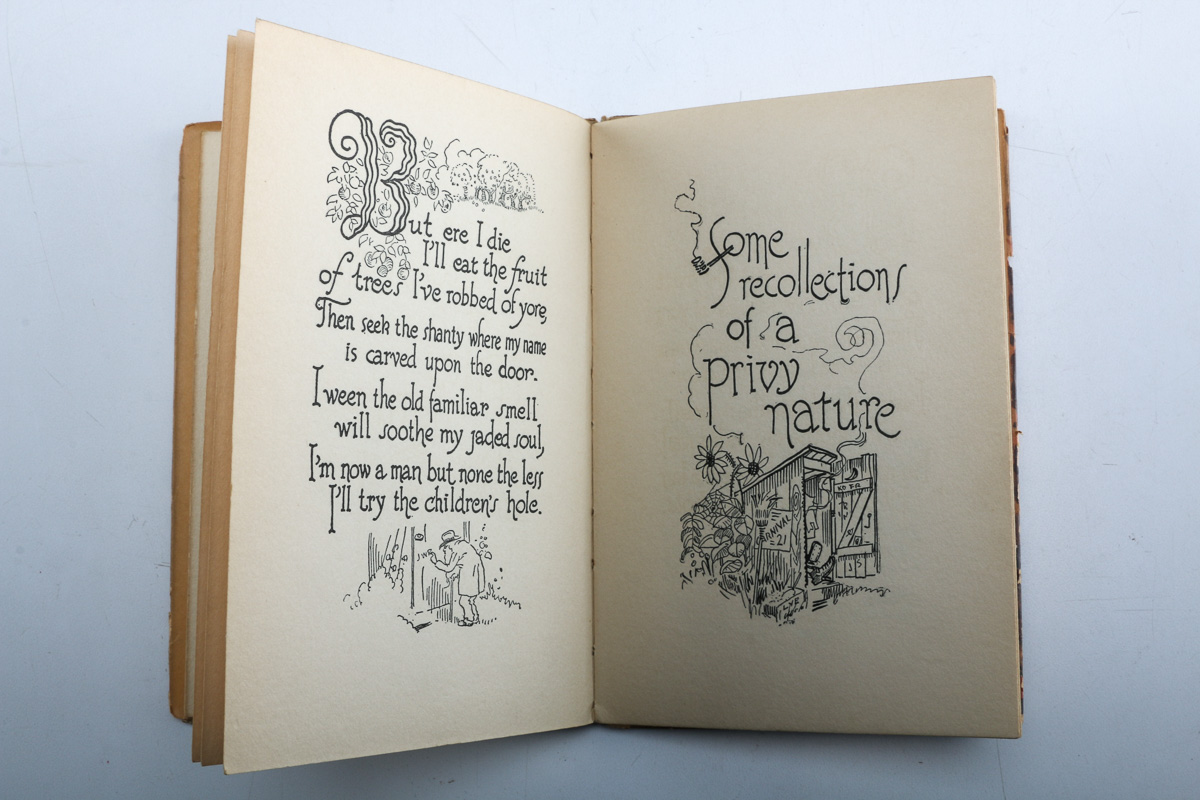 But ere I die
I'll eat the fruit
of trees I've robbed of yore,
Then seek the shanty where my name
is carved upon the door.
I ween the old familiar smell
will soothe my jaded soul,
I'm now a man but none the less
I'll try the children's hole.
Some
recollections
of a
privy
nature
RNIVAL
21
LYE